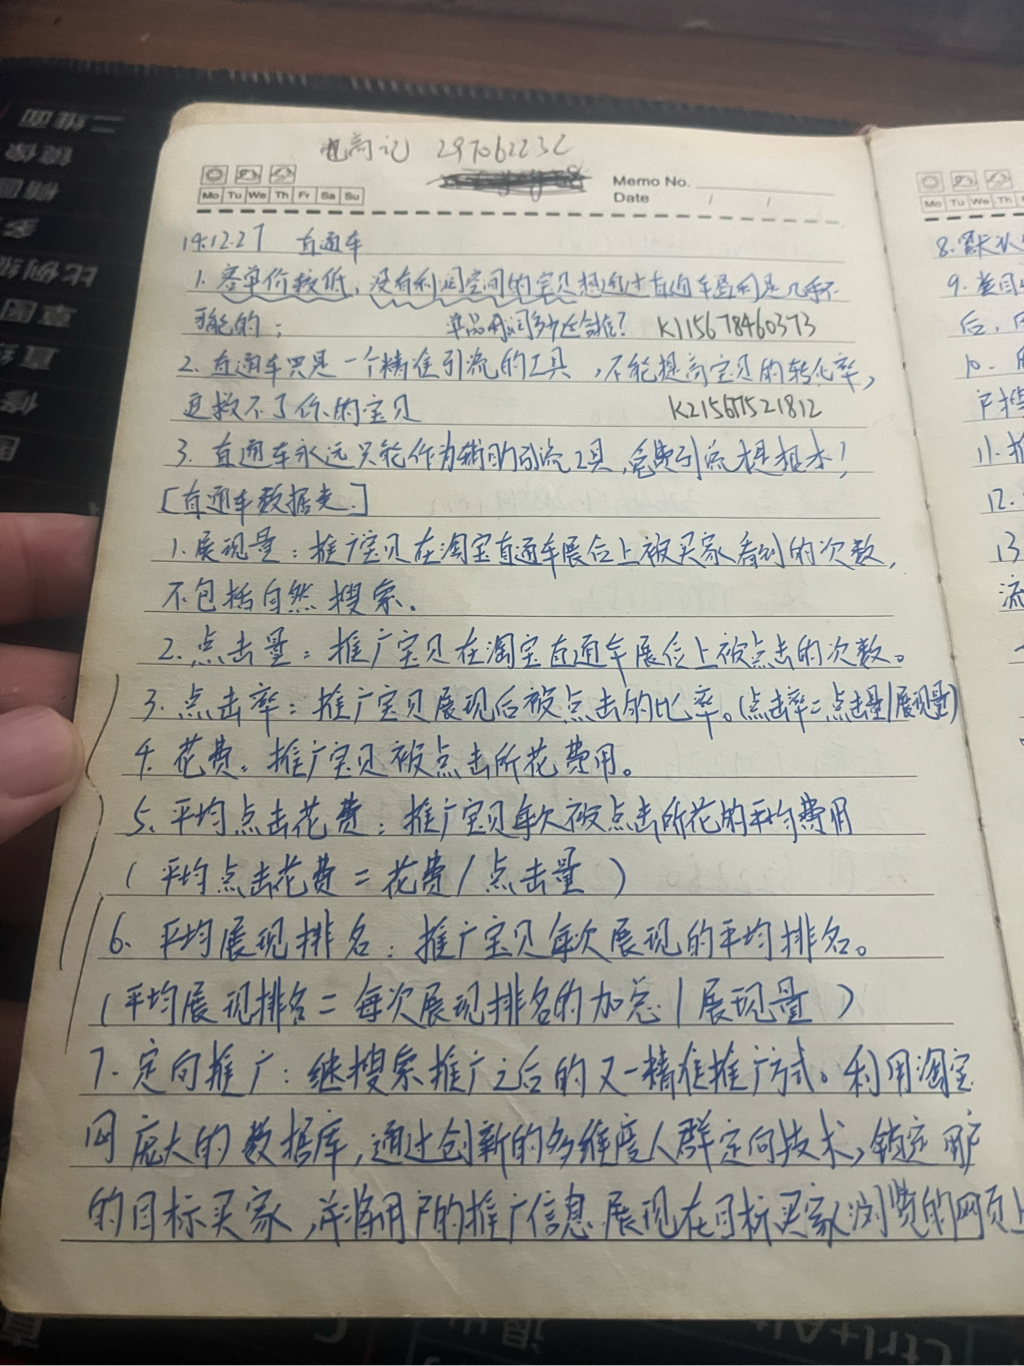 电商记 29706223C
Memo No.
Date / /
Mo Tu We Th Fr Sa Su
14.12.27 直通车
1. 客单价较低,没有利润空间的宝贝想通过直通车盈利是几乎不
可能的; 单品利润多少还合推? K115678460373
2. 直通车只是一个精准引流的工具,不能提高宝贝的转化率,
更救不了你的宝贝 K21567521812
3. 直通车永远只能作为辅助引流工具,免费引流才是根本!
[直通车数据类]
1. 展现量:推广宝贝在淘宝直通车展位上被买家看到的次数,
不包括自然搜索。
2. 点击量:推广宝贝在淘宝直通车展位上被点击的次数。
3. 点击率:推广宝贝展现后被点击的比率。(点击率=点击量/展现量)
4. 花费:推广宝贝被点击所花费用。
5. 平均点击花费:推广宝贝每次被点击所花的平均费用
(平均点击花费=花费/点击量)
6. 平均展现排名:推广宝贝每次展现的平均排名。
(平均展现排名=每次展现排名的加总/展现量)
7. 定向推广:继搜索推广之后的又一精准推广方式。利用淘宝
网庞大的数据库,通过创新的多维度人群定向技术,锁定用户
的目标买家,并将用户的推广信息展现在目标买家浏览的网页上
8. 默认
9. 类目
后,
10.
户
11.
12.
13
流
Mo Tu We Th
二维面
镜像
比例缩
直线
修
Ctrl+Alt+
退出